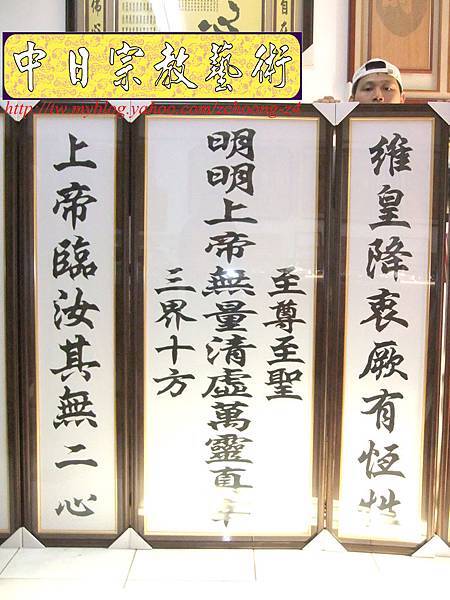 中日宗教藝術
http://tw.myblog.yahoo.com/zchoong-z4
維皇降衷厥有恆性
至尊至聖
明明上帝無量清虛萬靈真宰
三界十方
上帝臨汝其無二心